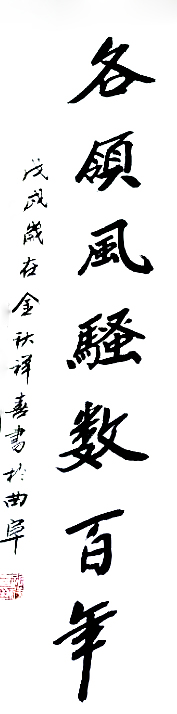 各領風騷数百年
戊戌歲在金秋祥喜書於曲阜